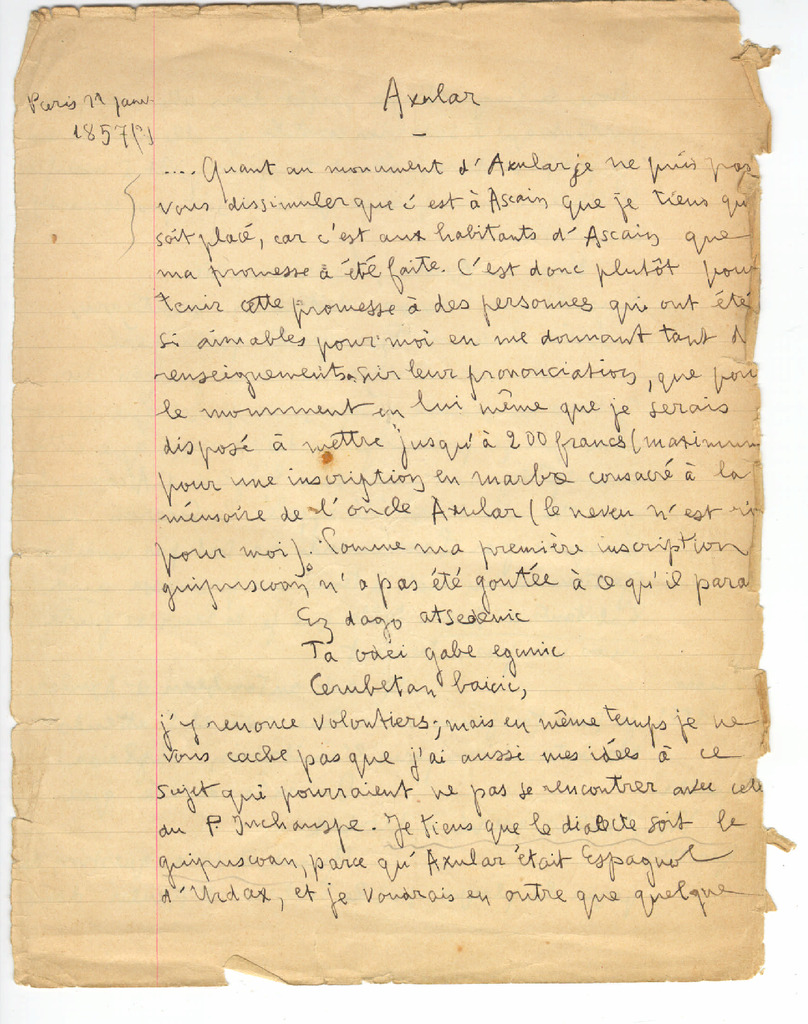 Axular
Paris 11 janv.
1857(?)
.... Quant au monument d'Axular je ne puis pas
vous dissimuler que c'est à Ascain que je tiens qu
soit placé, car c'est aux habitants d'Ascain que
ma promesse a été faite. C'est donc plutôt pour
tenir cette promesse à des personnes qui ont été
si aimables pour moi en me donnant tant d
renseignements sur leur prononciation, que pour
le monument en lui même que je serais
disposé à mettre jusqu'à 200 francs (maximum
pour une inscription en marbre consacré à la
mémoire de l'oncle Axular (le neveu n'est ri
pour moi). Comme ma première inscription
guipuscoan n'a pas été goutée à ce qu'il para
Ez dago atsedenic
Ta odei gabe egunic
Cerubetan baicic,
j'y renonce volontiers; mais en même temps je ne
vous cache pas que j'ai aussi mes idées à ce
sujet qui pourraient ne pas se rencontrer avec cele
du P. Inchauspe. Je tiens que le dialecte soit le
guipuscoan, parce qu'Axular était Espagnol
d'Urdax, et je voudrais en outre que quelque